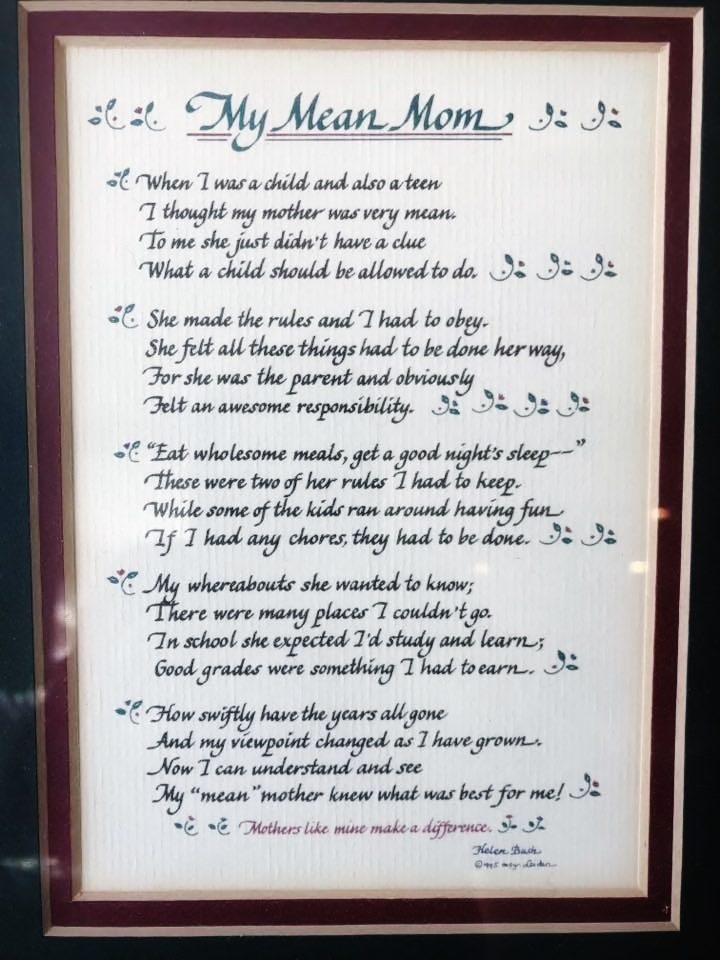 My Mean Mom
When I was a child and also a teen
I thought my mother was very mean.
To me she just didn't have a clue
What a child should be allowed to do.
She made the rules and I had to obey.
She felt all these things had to be done her way,
For she was the parent and obviously
Felt an awesome responsibility.
"Eat wholesome meals, get a good night's sleep--"
These were two of her rules I had to keep.
While some of the kids ran around having fun
If I had any chores, they had to be done.
My whereabouts she wanted to know;
There were many places I couldn't go.
In school she expected I'd study and learn;
Good grades were something I had to earn.
How swiftly have the years all gone
And my viewpoint changed as I have grown.
Now I can understand and see
My "mean" mother knew what was best for me!
Mothers like mine make a difference.
Helen Bush
©1995